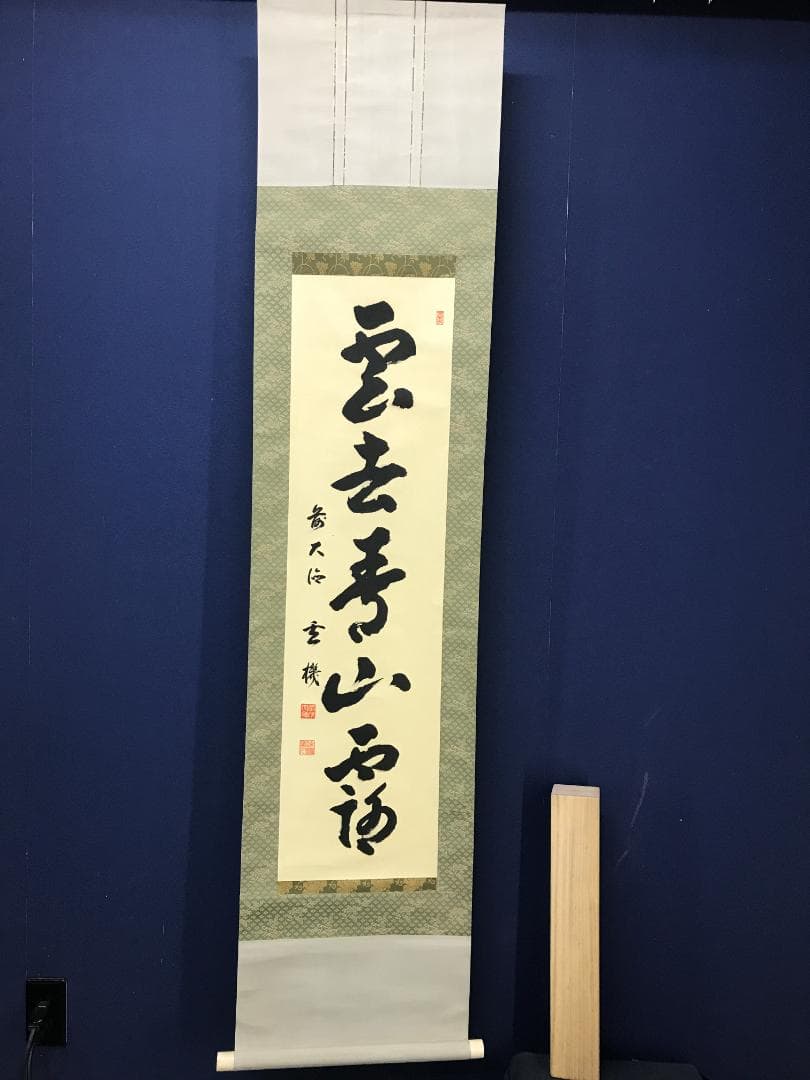 雲去青山露
前大徳 雲機